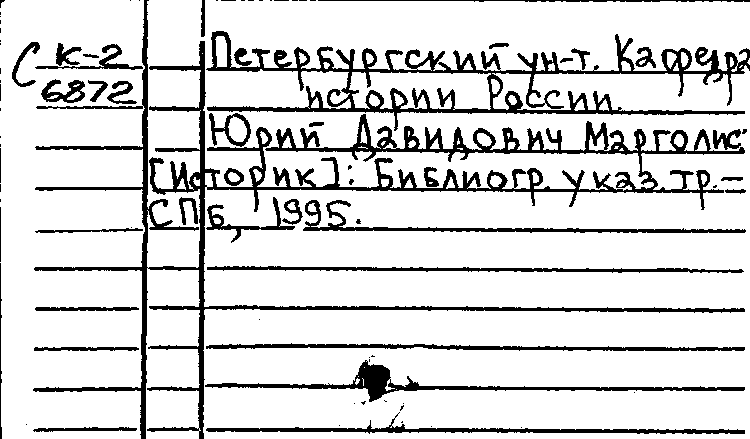 С К-2
6872
Петербургский ун-т. Кафедра
истории России.
Юрий Давидович Марголис
[Историк]: Библиогр. указ. тр.—
СПб, 1995.